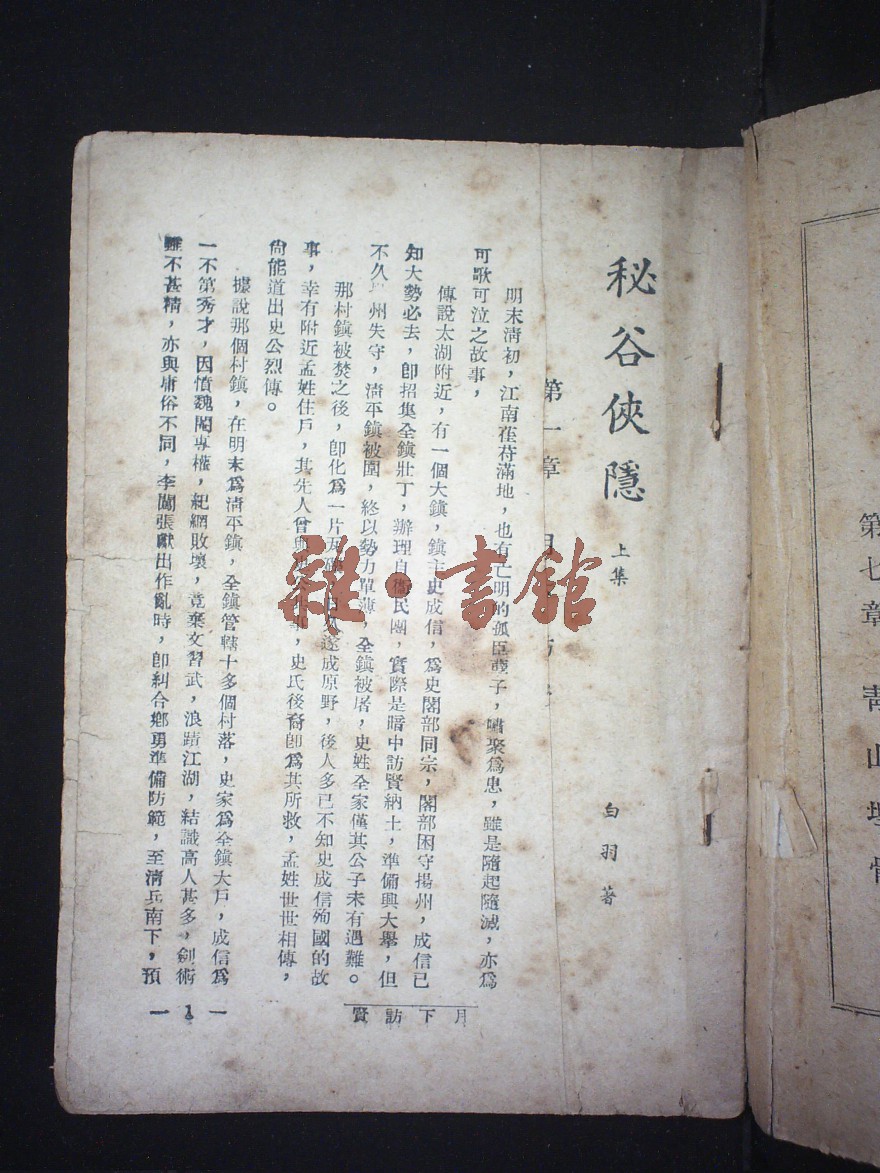 第七章 青山埋骨
秘谷俠隱 上集 白羽著
第一章 月 訪
明末清初，江南萑苻滿地，也有亡明的孤臣孽子，嘯聚爲患，雖是隨起隨滅，亦爲
可歌可泣之故事，
傳說太湖附近，有一個大鎭，鎭主史成信，爲史閣部同宗，閣部困守揚州，成信已
知大勢必去，卽招集全鎭壯丁，辦理自衛民團，實際是暗中訪賢納士，準備興大舉，但
不久 州失守，淸平鎭被圍，終以勢力單薄，全鎭被屠，史姓全家僅其公子未有遇難。
那村鎭被焚之後，卽化爲一片瓦礫 遂成原野，後人多已不知史成信殉國的故
事，幸有附近孟姓住戶，其先人曾 史氏後裔卽爲其所救，孟姓世世相傳，
尙能道出史公烈傳。
據說那個村鎭，在明末爲淸平鎭，全鎭管轄十多個村落，史家爲全鎭大戶，成信爲
一不第秀才，因憤魏閹專權，紀綱敗壞，竟棄文習武，浪蹟江湖，結識高人甚多，劍術
雖不甚精，亦與庸俗不同，李闖張獻出作亂時，卽糾合鄉勇準備防範，至淸兵南下，預
月下訪賢
一1一
雜·書館